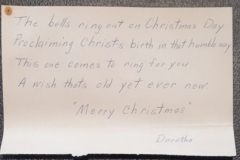 The bells ring out on Christmas Day
Proclaiming Christ's birth in that humble way
This one comes to ring for you
A wish thats old yet ever new.
"Merry Christmas"
Dorothea